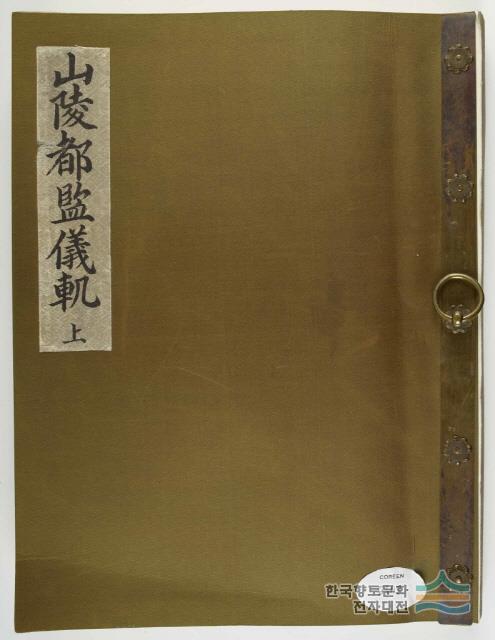 山陵都監儀軌 上
COREEN
한국향토문화
전자대전